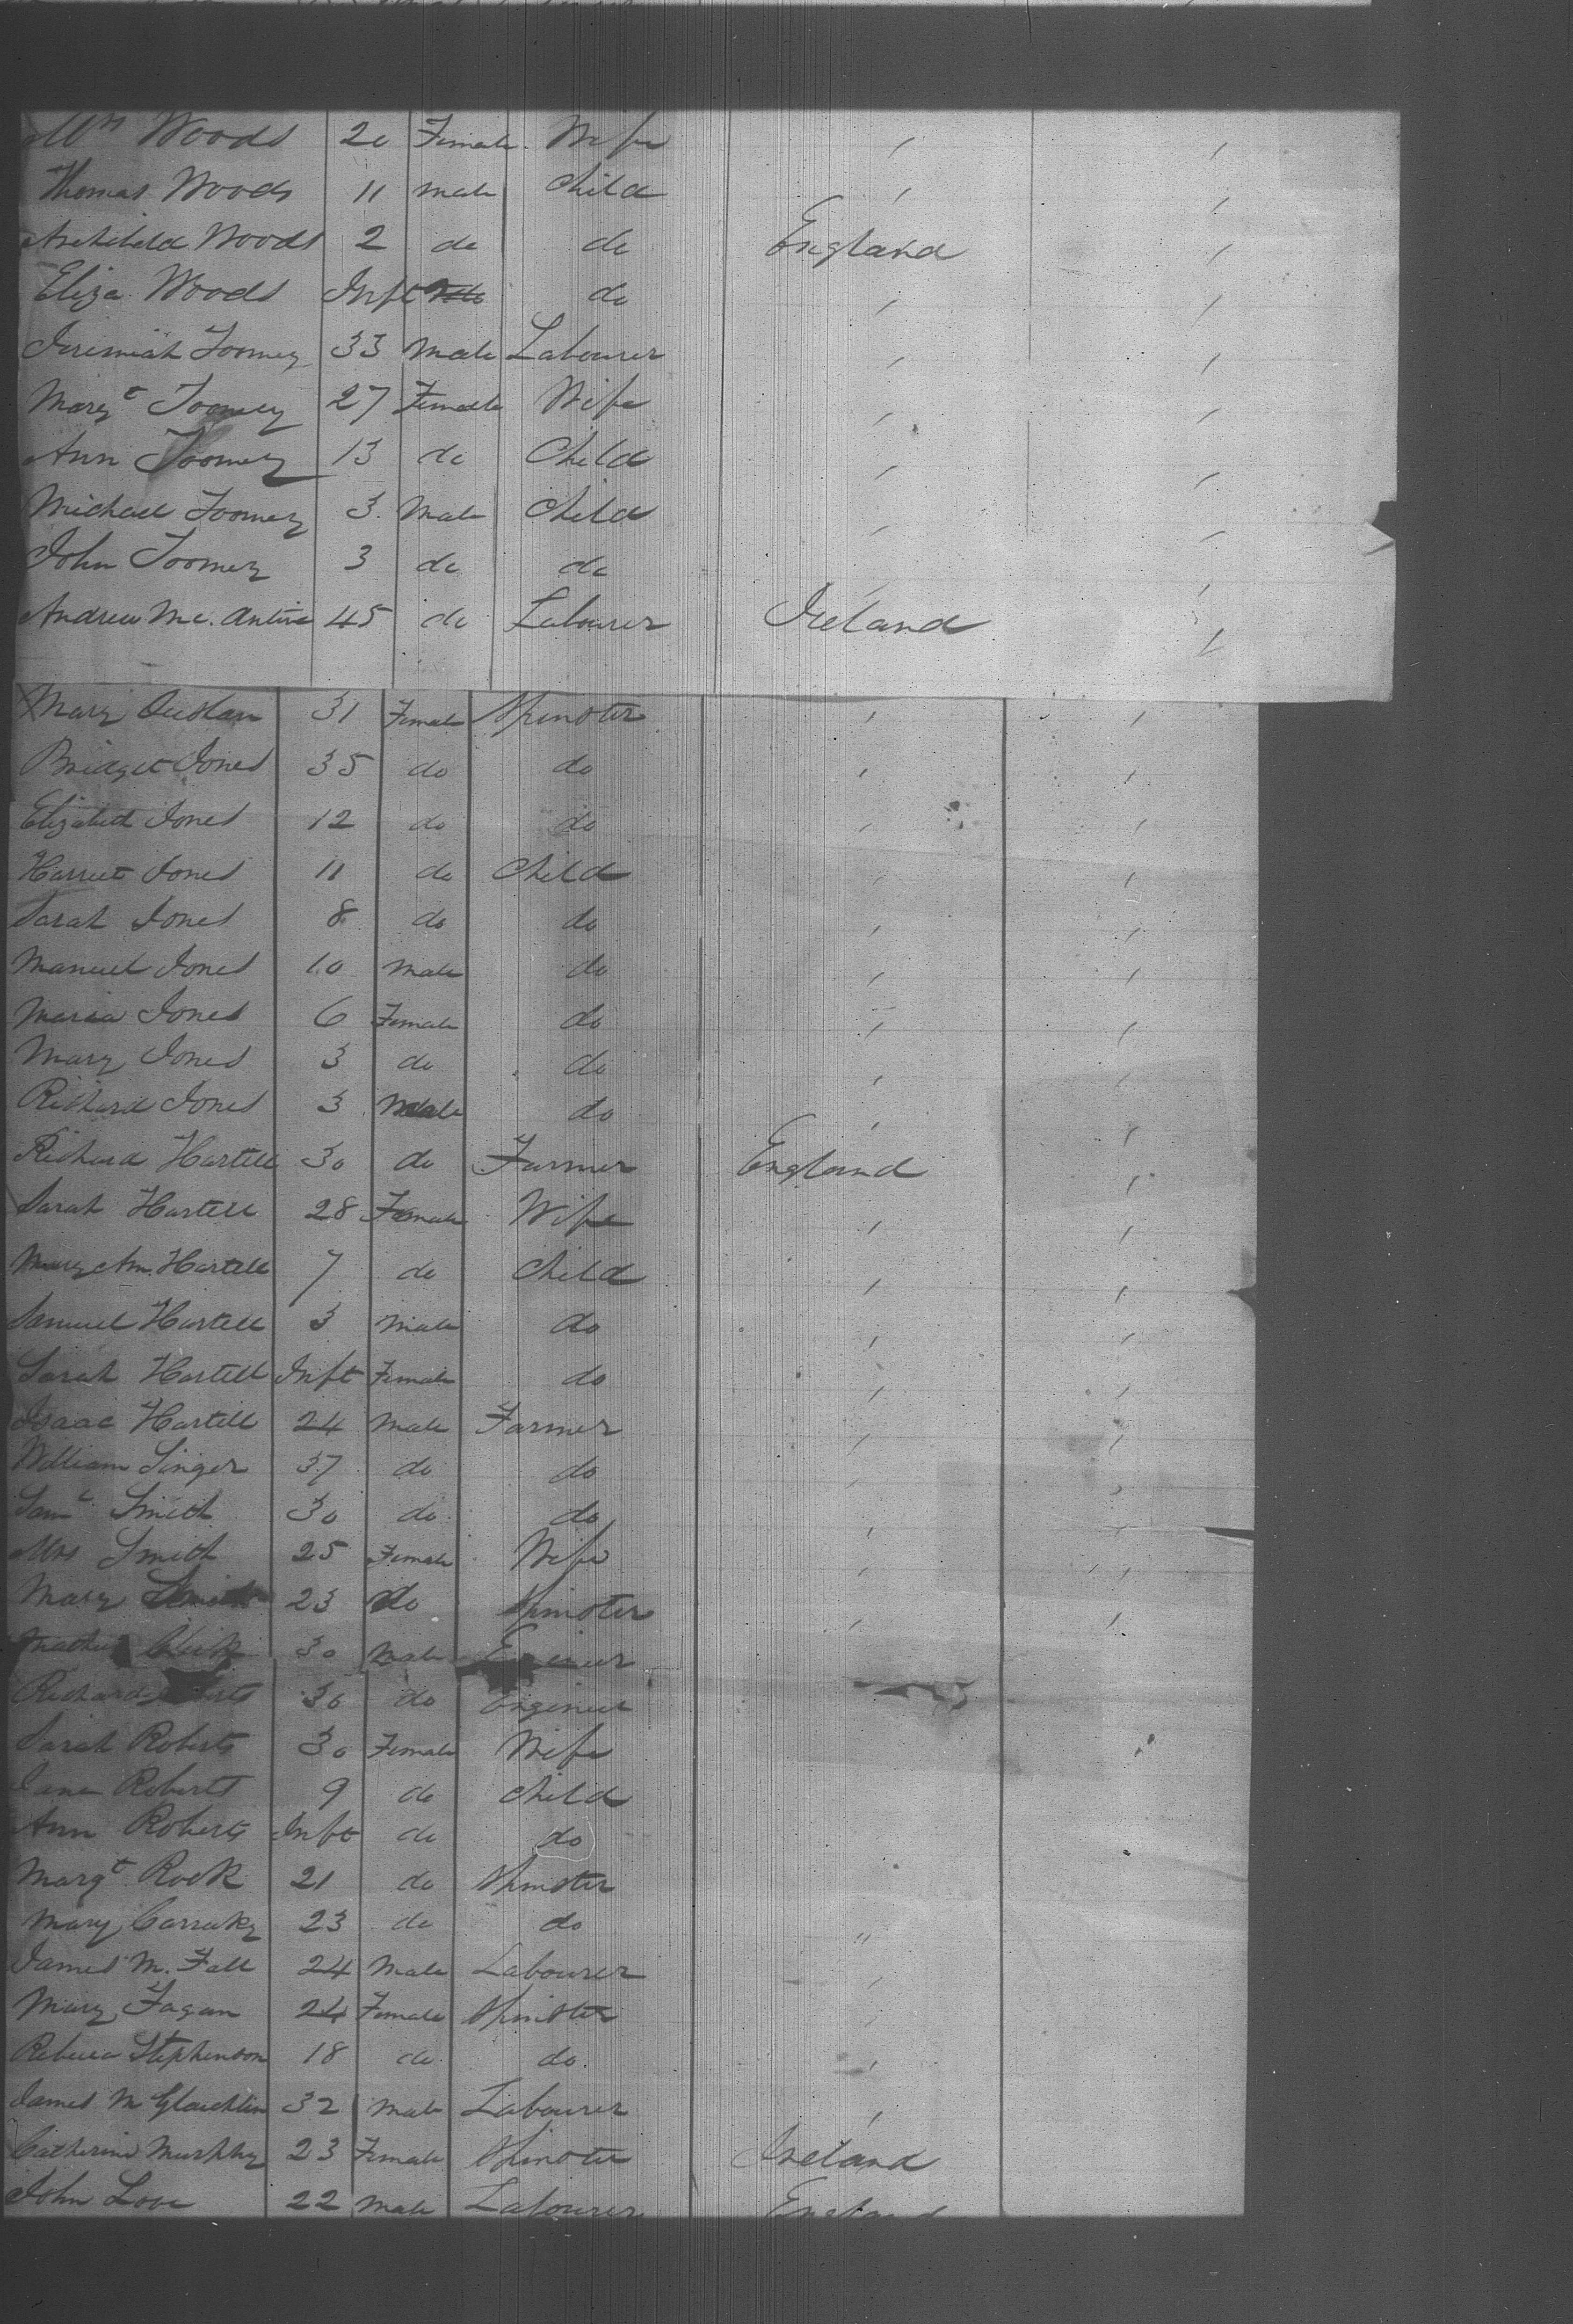 Mrs Woods 20 Female Wife "
Thomas Woods 11 male Child " "
Archibald Woods 2 do do England "
Eliza Woods Inft do " "
Jeremiah Toomey 33 Male Labourer " "
Margt Toomey 27 Female Wife " "
Ann Toomey 13 do Child " "
Michael Toomey 3 Male Child " "
John Toomey 3 do do " "
Andrew Mc. 45 do Labourer Ireland "
Mary 31 Female Spinster " "
Bridget Jones 35 do do " "
Elizabeth Jones 12 do do " "
Harriet Jones 11 do Child " "
Sarah Jones 8 do do " "
Manuel Jones 10 Male do " "
Maria Jones 6 Female do " "
Mary Jones 3 do do " "
Richard Jones 3 Male do " "
Richard Hartell 30 do Farmer England "
Sarah Hartell 28 Female Wife " "
Mary Ann Hartell 7 do Child " "
Samuel Hartell 3 Male do " "
Sarah Hartell Inft Female do " "
Isaac Hartell 24 Male Farmer " "
William Singer 37 do do " "
Saml Smith 30 do do " "
Mrs Smith 25 Female Wife " "
Mary Smith 23 do Spinster " "
30 Male
Richard 30 do Engineer
Sarah Roberts 30 Female Wife
Jane Roberts 9 do Child
Ann Roberts Inft do do
Margt Rock 21 do Spinster
Mary 23 do do "
James M. Fall 24 Male Labourer "
Mary Fagan 24 Female Spinster "
Rebecca Stephenson 18 do do. "
James M Glauchlin 32 Male Labourer "
Catherine Murphy 23 Female Spinster Ireland
John Love 22 Male Labourer England